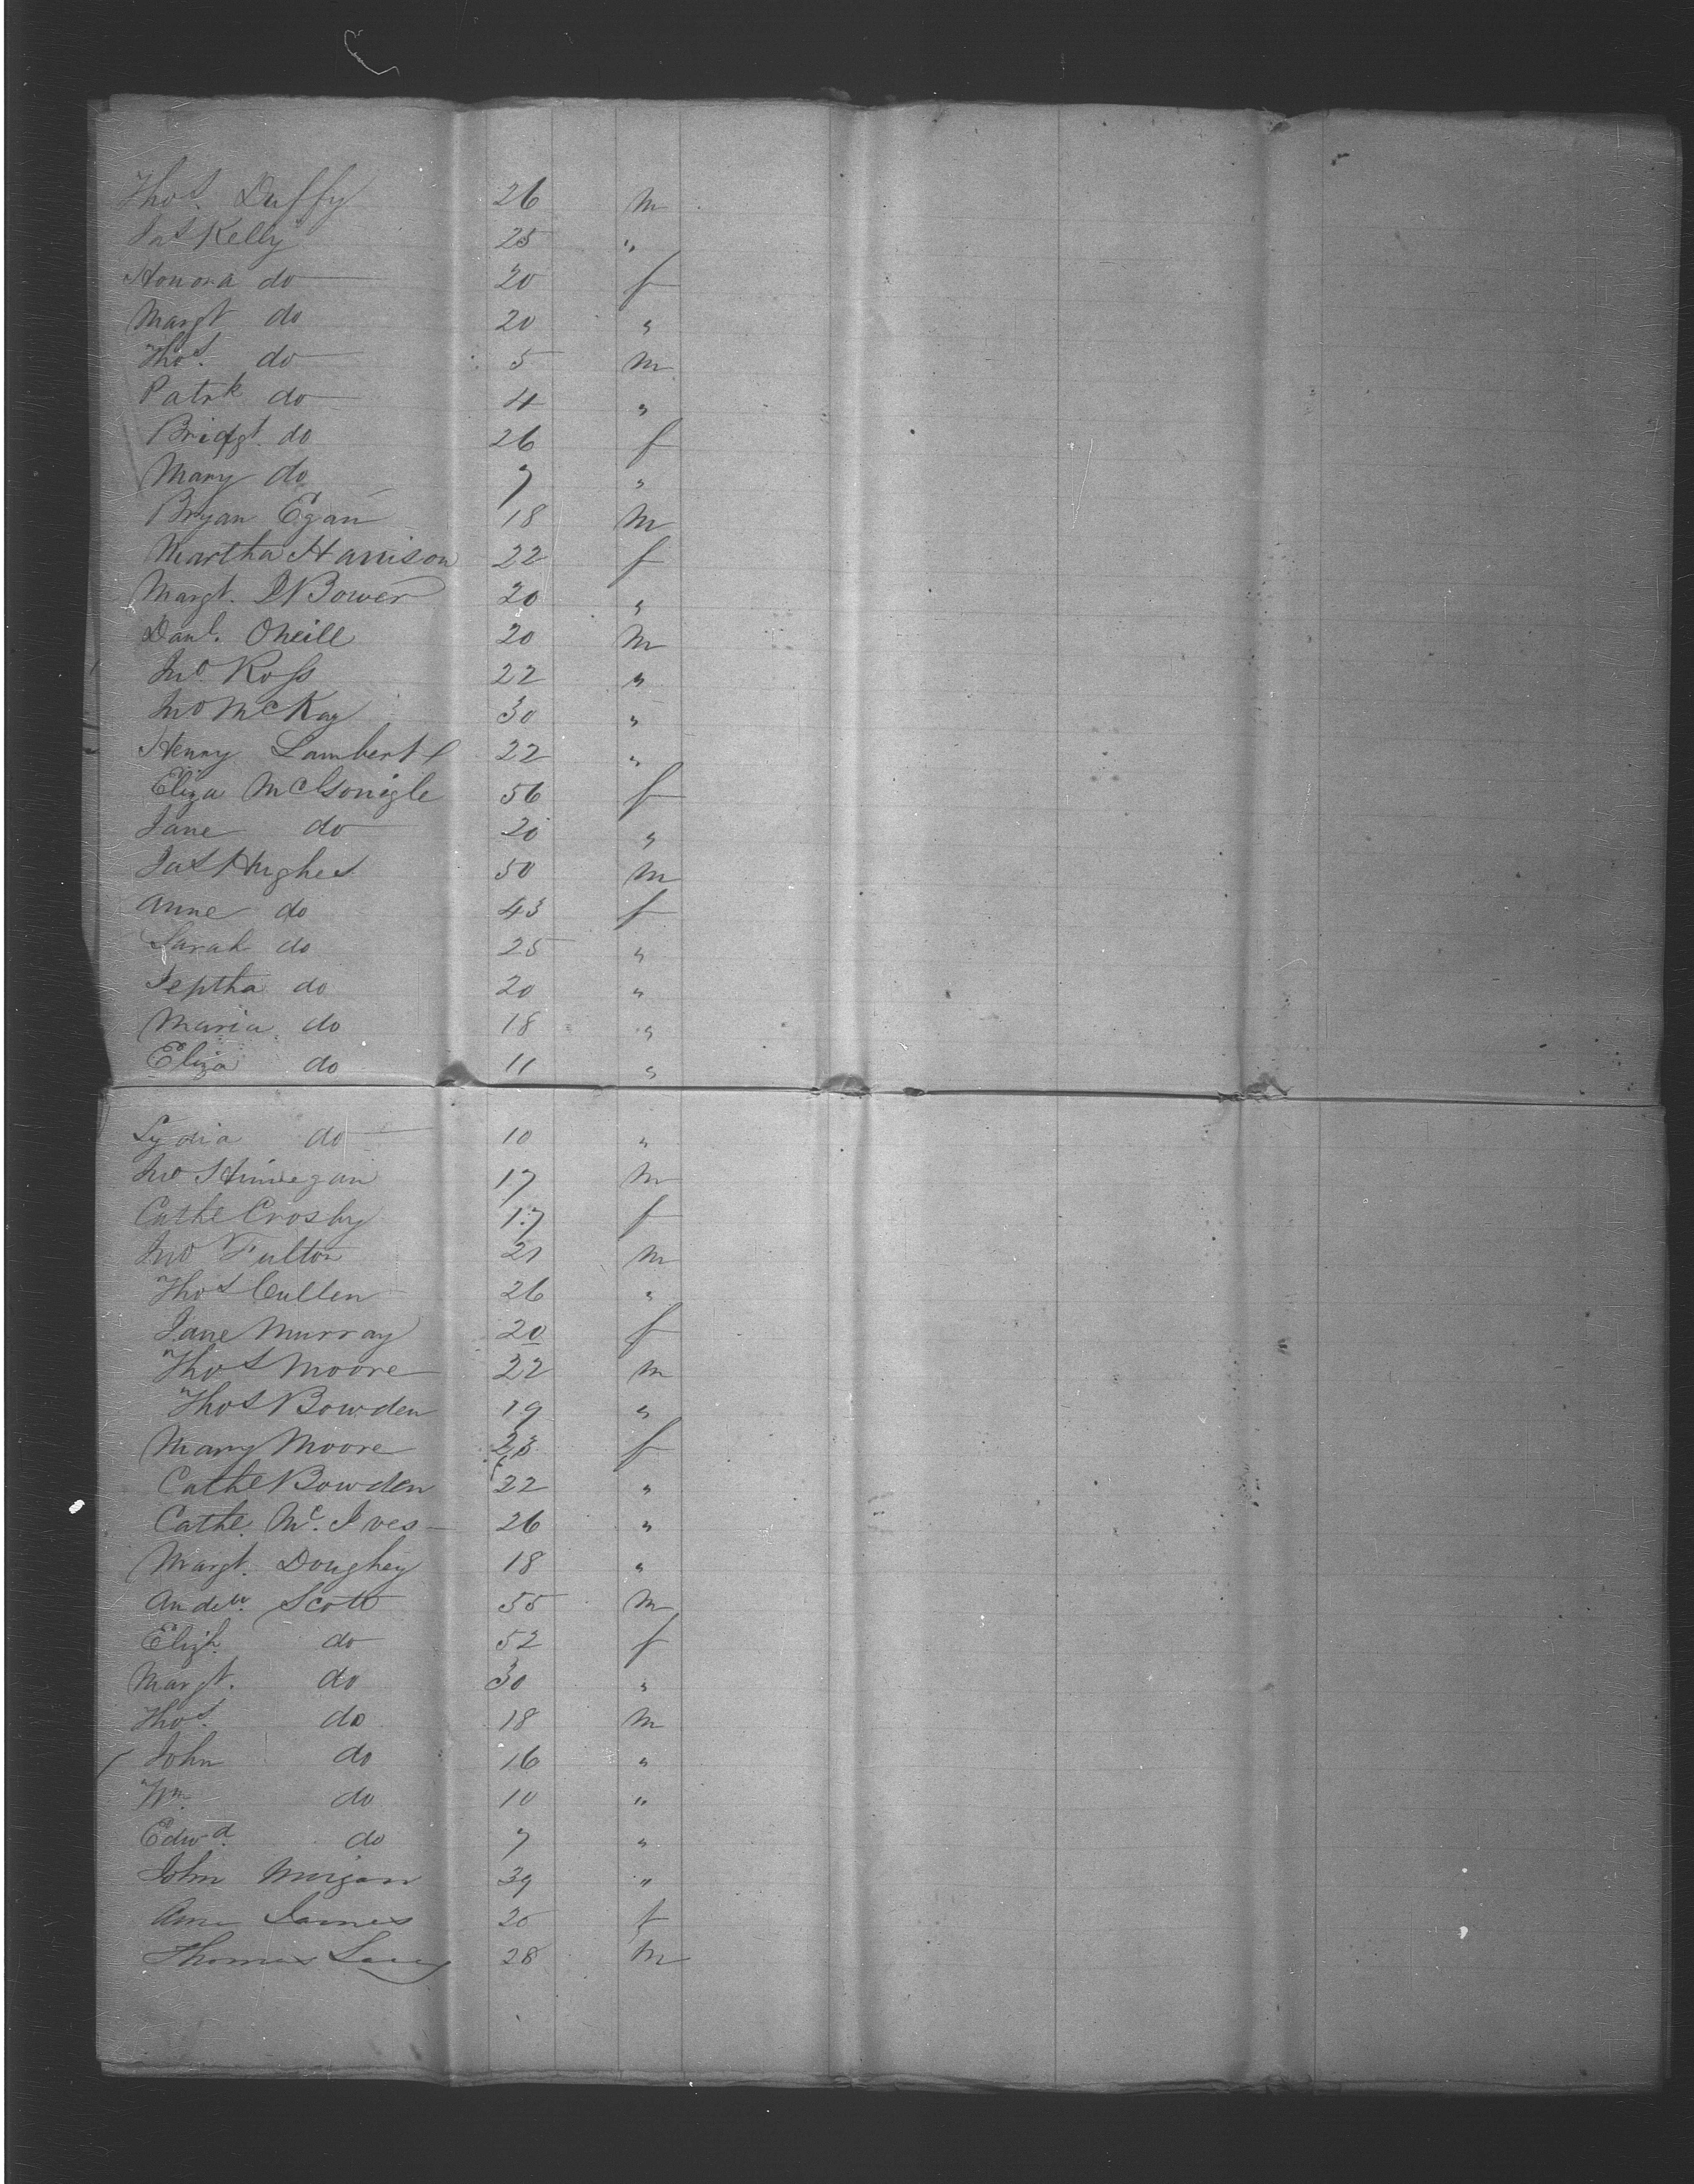 Thos. Duffy 26 m
Jas Kelly 25 "
Honora do 20 f
Margt do 20 "
Thos. do 5 m
Patrk do 4 "
Bridgt. do 26 f
Mary do 7 "
Bryan Egan 18 m
Martha Harrison 22 f
Margt. Bower 20 "
Danl. Oneill 20 m
Jno. Ross 22 "
Jno McKay 30 "
Henry Lambert 22 "
Eliza McGonigle 56 f
Jane do 20 "
Jas Hughes 50 m
Anne do 43 f
Sarah do 25 "
Jeptha do 20 "
Maria do 18 "
Eliza do 11 "
Lydia do 10 "
Jno 17 m
Cathe Crosby 17 f
Jno Fulton 21 m
Thos Cullen 26 "
Jane Murray 20 f
Thos Moore 22 m
Thos Bowden 19 "
Mary Moore 23 f
Cathe Bowden 22 "
Cathe. Mc. Ives 26 "
Margt. Doughey 18 "
Andew. Scott 55 m
Elizh. do 52 f
Margt. do 30 "
Thos. do 18 m
John do 16 "
Wm. do 10 "
Edwd. do 7 "
John Morgan 39 "
Ann James 20 f
Thomas 28 m